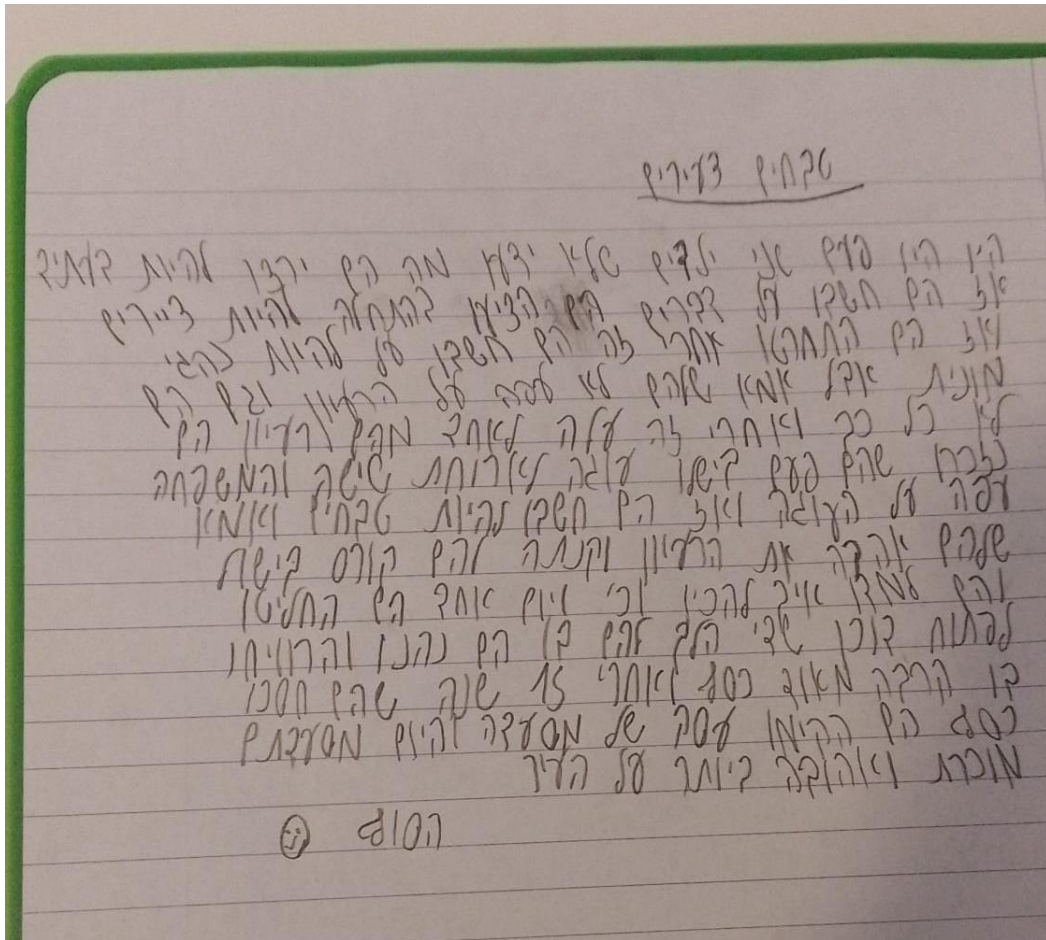 טבחים צעירים
היו היו פעם שני ילדים שלא ידעו מה הם ירצו להיות בעתיד
אז הם חשבו על דברים הם הציעו בהתחלה להיות ציירים
ואז הם התחרטו אחרי זה הם חשבו על להיות נהגי
מונית אבל אמא שלהם לא עפה על הרעיון וגם הם
לא כל כך ואחרי זה עלה לאחד מהם רעיון הם
נזכרו שהם פעם בישלו עוגה לארוחת שישי והמשפחה
עפה על העוגה ואז הם חשבו להיות טבחים ואמא
שלהם אהבה את הרעיון וקנתה להם קורס בישול
והם למדו איך להכין וכו' ויום אחד הם החליטו
לפתוח דוכן שדי הלך להם בו הם נהנו והרוויחו
בו הרבה מאוד כסף ואחרי 15 שנה שהם חסכו
כסף הם הקימו עסק של מסעדה והיום מסעדתם
מוכרת ואהובה ביותר על העיר
הסוף